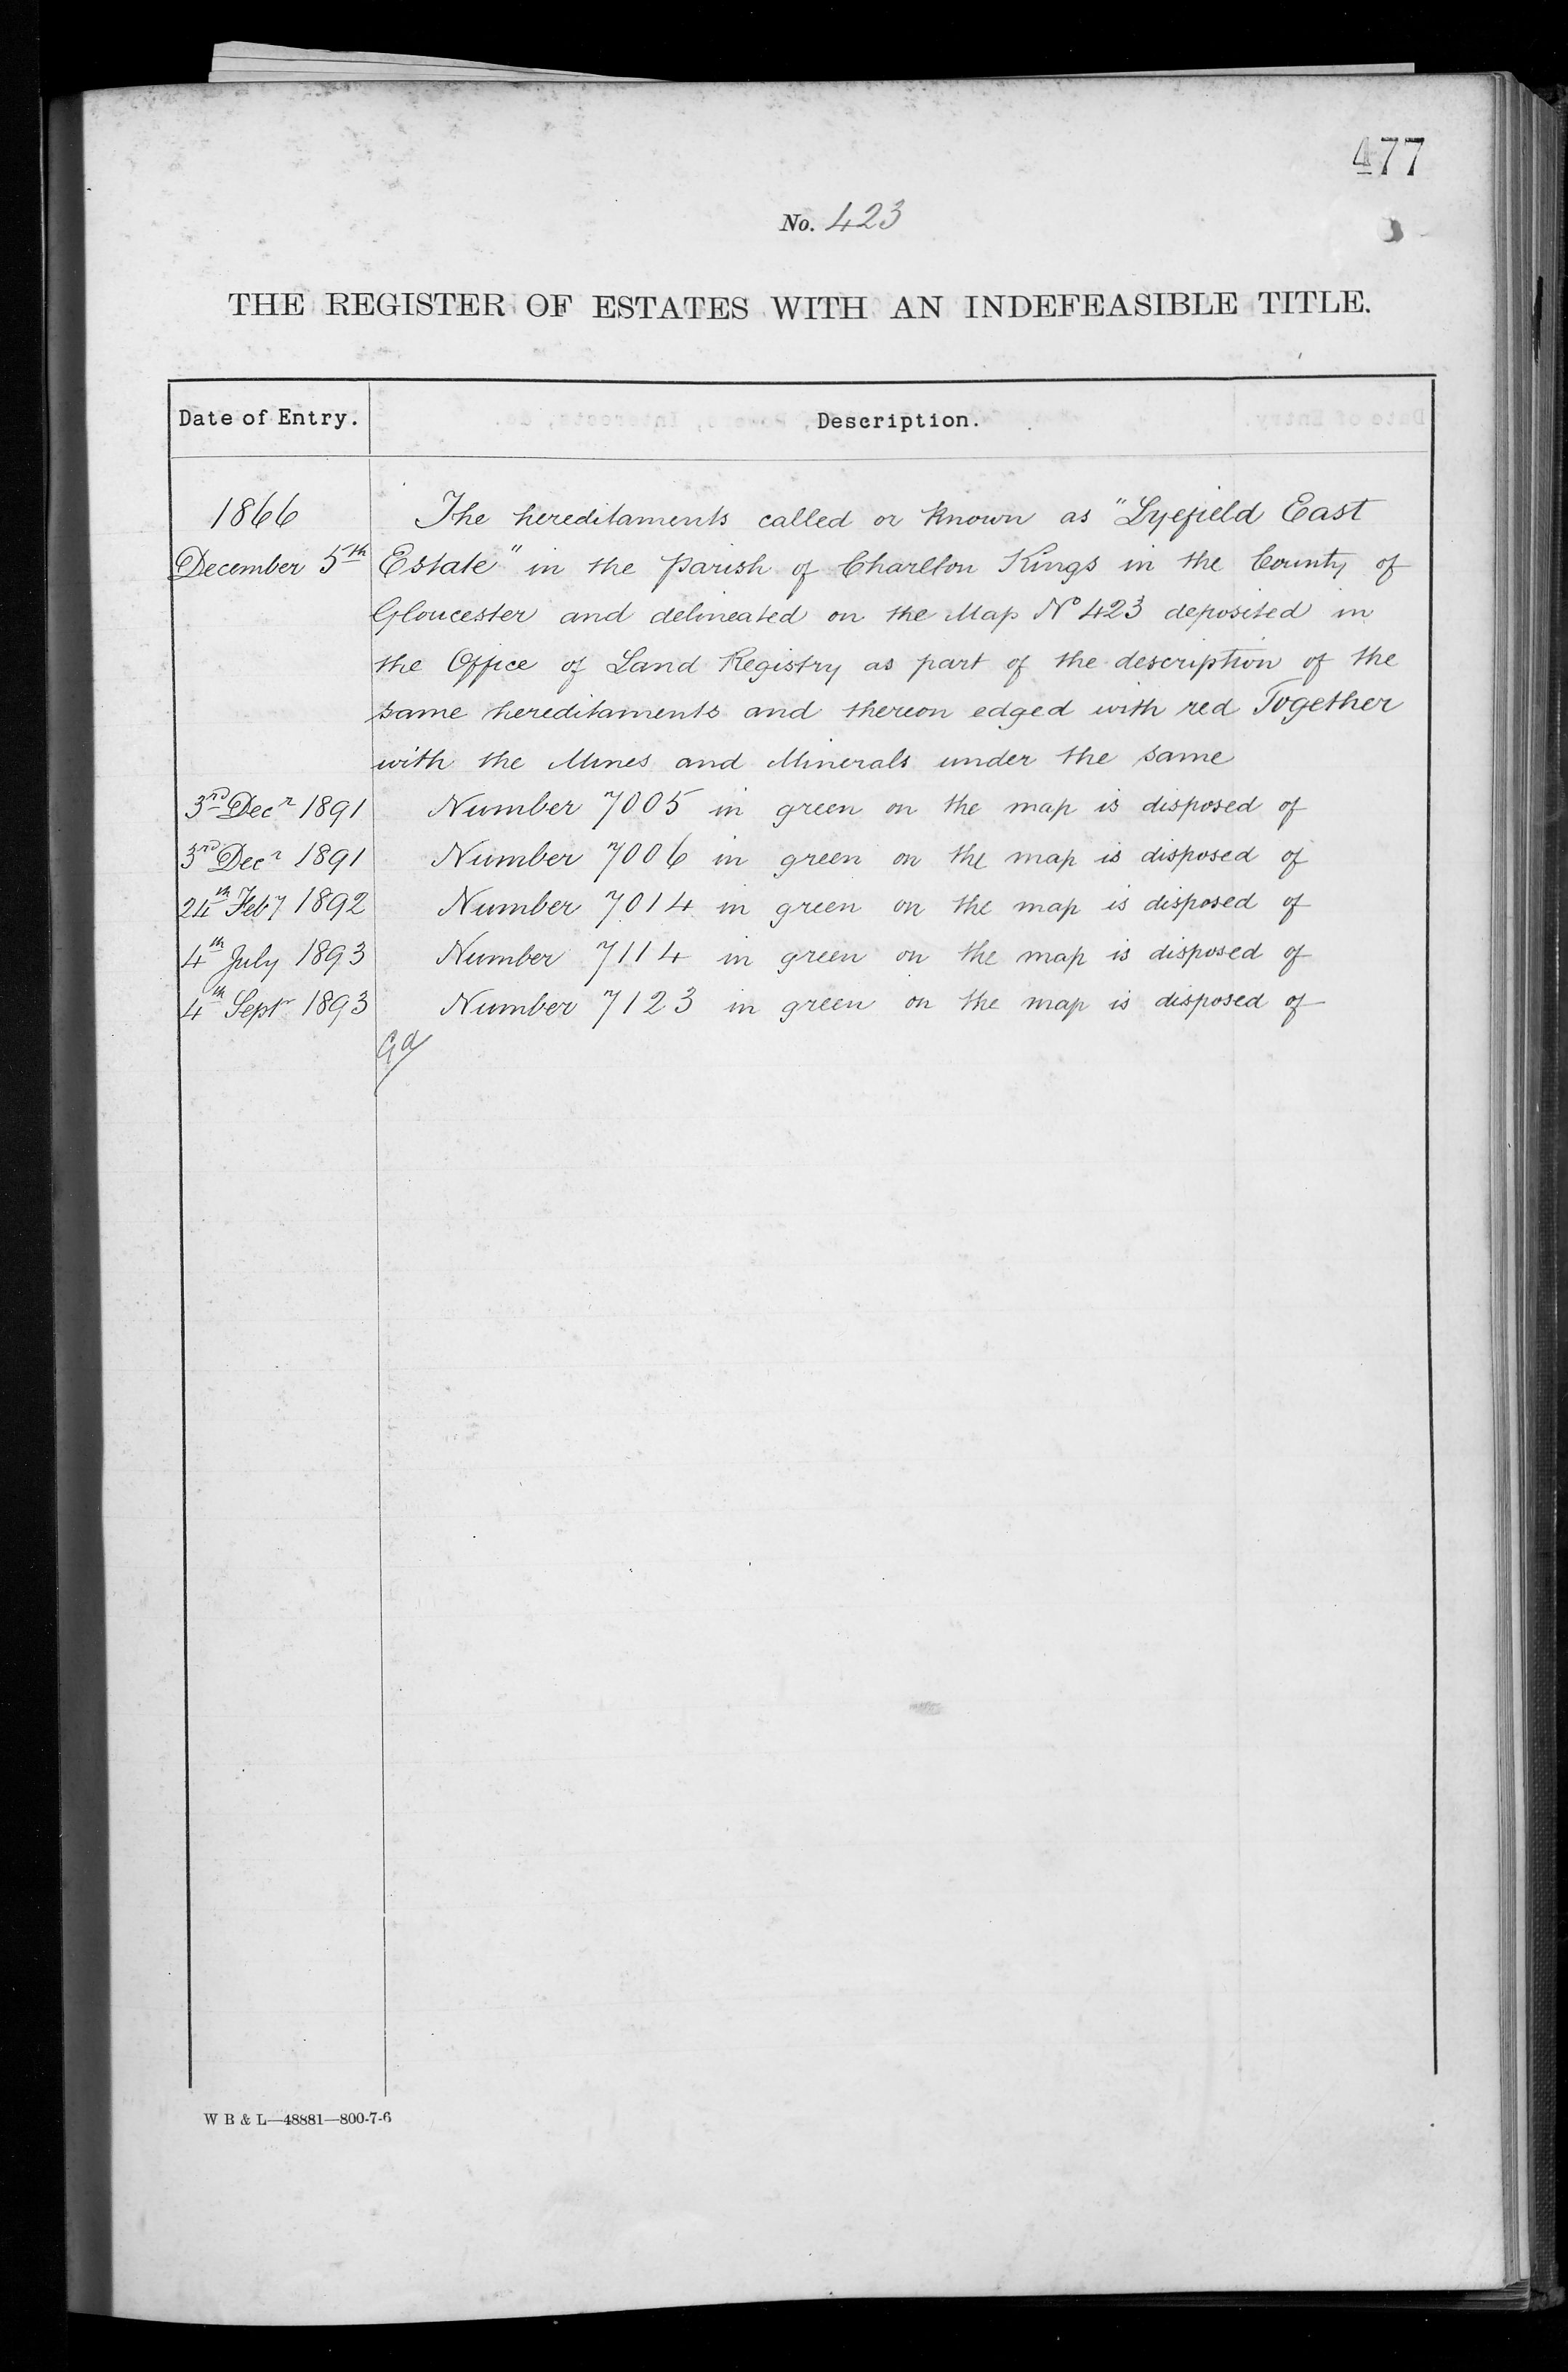 477
No. 423
THE REGISTER OF ESTATES WITH AN INDEFEASIBLE TITLE.
Date of Entry. Description.
1866 The hereditaments called or known as "Lyefield East
December 5th Estate" in the parish of Charlton Kings in the County of
Gloucester and delineated on the Map No 423 deposited in
the Office of Land Registry as part of the description of the
same hereditaments and thereon edged with red Together
with the Mines and Minerals under the same
3rd Decr 1891 Number 7005 in green on the map is disposed of
3rd Decr 1891 Number 7006 in green on the map is disposed of
24th Feby 1892 Number 7014 in green on the map is disposed of
4th July 1893 Number 7114 in green on the map is disposed of
4th Sept 1893 Number 7123 in green on the map is disposed of
W B & L—48881—800-7-6